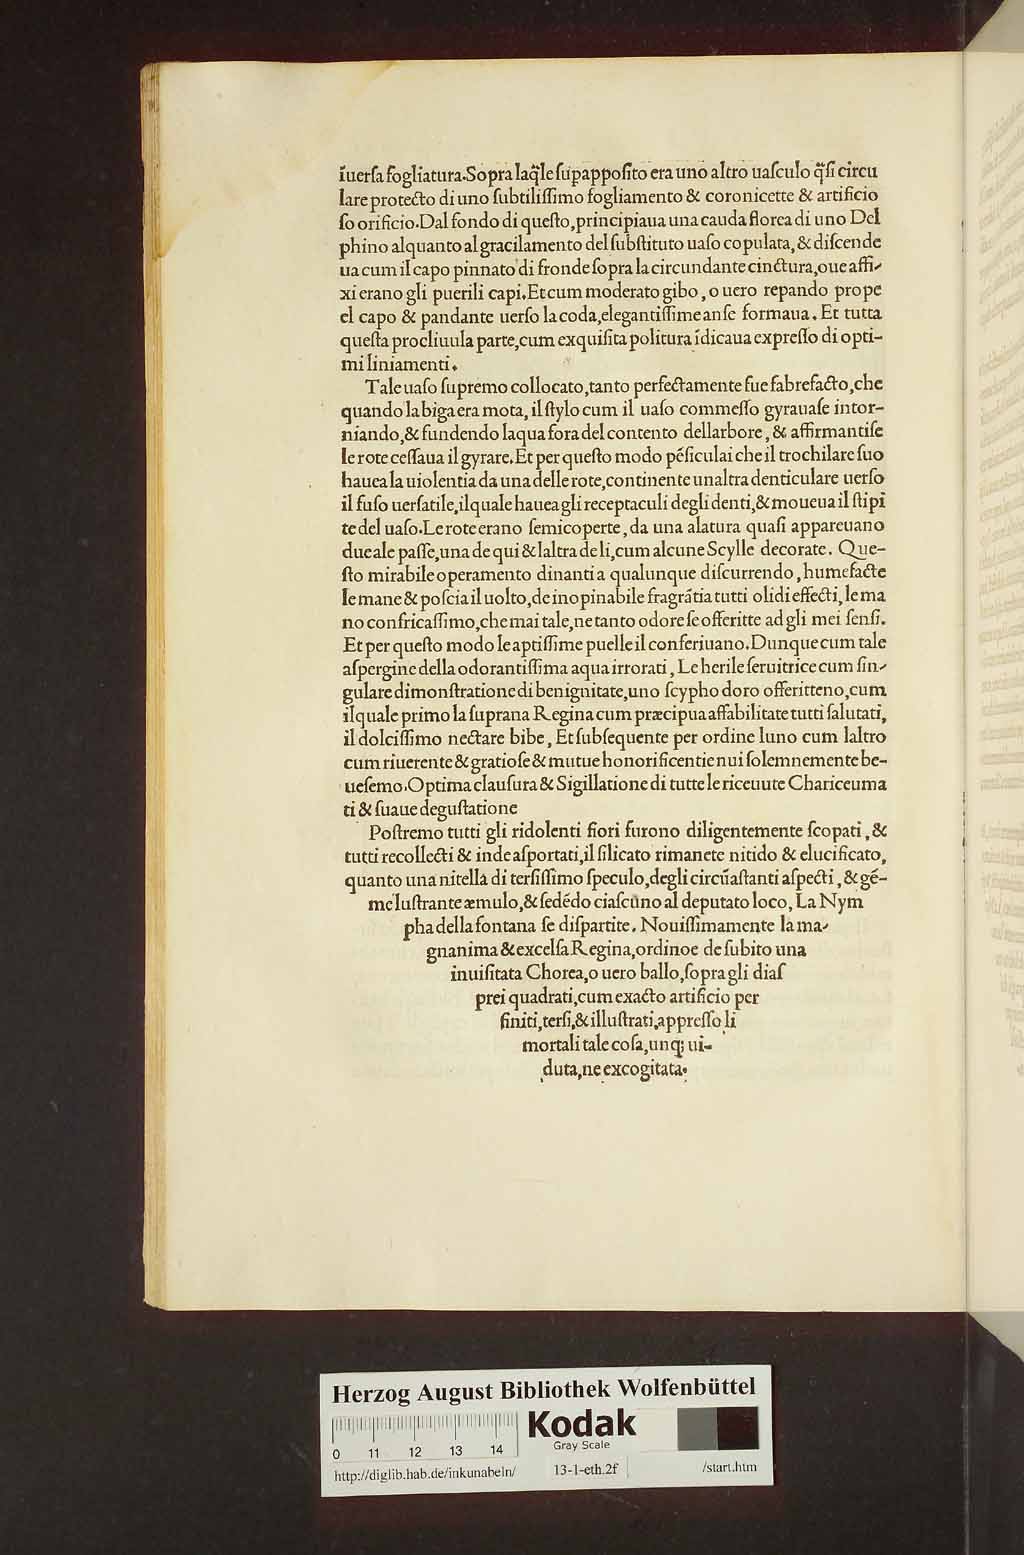 ĩuerſa fogliatura.Sopra laq̃le ſupappoſito era uno altro uaſculo q̃ſi circu
lare protecto di uno ſubtiliſſimo fogliamento & coronicette & artificio
ſo orificio.Dal fondo di queſto,principiaua una cauda florea di uno Del
phino alquanto al gracilamento del ſubſtituto uaſo copulata,& diſcende
ua cum il capo pinnato di fronde ſopra la circundante cinctura,oue affi-
xi erano gli puerili capi.Et cum moderato gibo, o uero repando prope
el capo & pandante uerſo la coda,elegantiſſime anſe formaua. Et tutta
queſta procliuula parte,cum exquiſita politura ĩdicaua expreſſo di opti-
mi liniamenti.
Tale uaſo ſupremo collocato,tanto perfectamente fue fabrefacto,che
quando la biga era mota, il ſtylo cum il uaſo commeſſo gyrauaſe intor-
niando,& fundendo laqua fora del contento dellarbore, & affirmantiſe
le rote ceſſaua il gyrare.Et per queſto modo pẽſiculai che il trochilare ſuo
hauea la uiolentia da una delle rote,continente unaltra denticulare uerſo
il fuſo uerſatile,ilquale hauea gli receptaculi degli denti,& moueua il ſtipi
te del uaſo.Le rote erano ſemicoperte, da una alatura quaſi appareuano
due ale paſſe,una de qui & laltra de li,cum alcune Scylle decorate. Que-
ſto mirabile operamento dinanti a qualunque diſcurrendo, humefacte
le mane & poſcia il uolto,de inopinabile fragrãtia tutti olidi effecti, le ma
no confricaſſimo,che mai tale,ne tanto odore ſe offeritte ad gli mei ſenſi.
Et per queſto modo le aptiſſime puelle il conferiuano.Dunque cum tale
aſpergine della odorantiſſima aqua irrorati, Le herile ſeruitrice cum ſin-
gulare dimonſtratione di benignitate,uno ſcypho doro offeritteno,cum
ilquale primo la ſuprana Regina cum præcipua affabilitate tutti ſalutati,
il dolciſſimo nectare bibe, Et ſubſequente per ordine luno cum laltro
cum riuerente & gratioſe & mutue honorificentie nui ſolemnemente be-
ueſemo.Optima clauſura & Sigillatione di tutte le riceuute Chariceuma
ti & ſuaue deguſtatione
Poſtremo tutti gli ridolenti fiori furono diligentemente ſcopati, &
tutti recollecti & inde aſportati,il ſilicato rimanete nitido & elucificato,
quanto una nitella di terſiſſimo ſpeculo,degli circũaſtanti aſpecti, & gẽ-
me luſtrante æmulo,& ſedẽdo ciaſcuno al deputato loco, La Nym
pha della fontana ſe diſpartite. Nouiſſimamente la ma-
gnanima & excelſa Regina,ordinoe de ſubito una
inuiſitata Chorea,o uero ballo,ſopra gli diaſ
prei quadrati,cum exacto artificio per
finiti,terſi,& illuſtrati,appreſſo li
mortali tale coſa,unq; ui-
duta,ne excogitata.
Herzog August Bibliothek Wolfenbüttel
Kodak
Gray Scale
0 11 12 13 14
http://diglib.hab.de/inkunabeln/ 13-1-eth.2f /start.htm